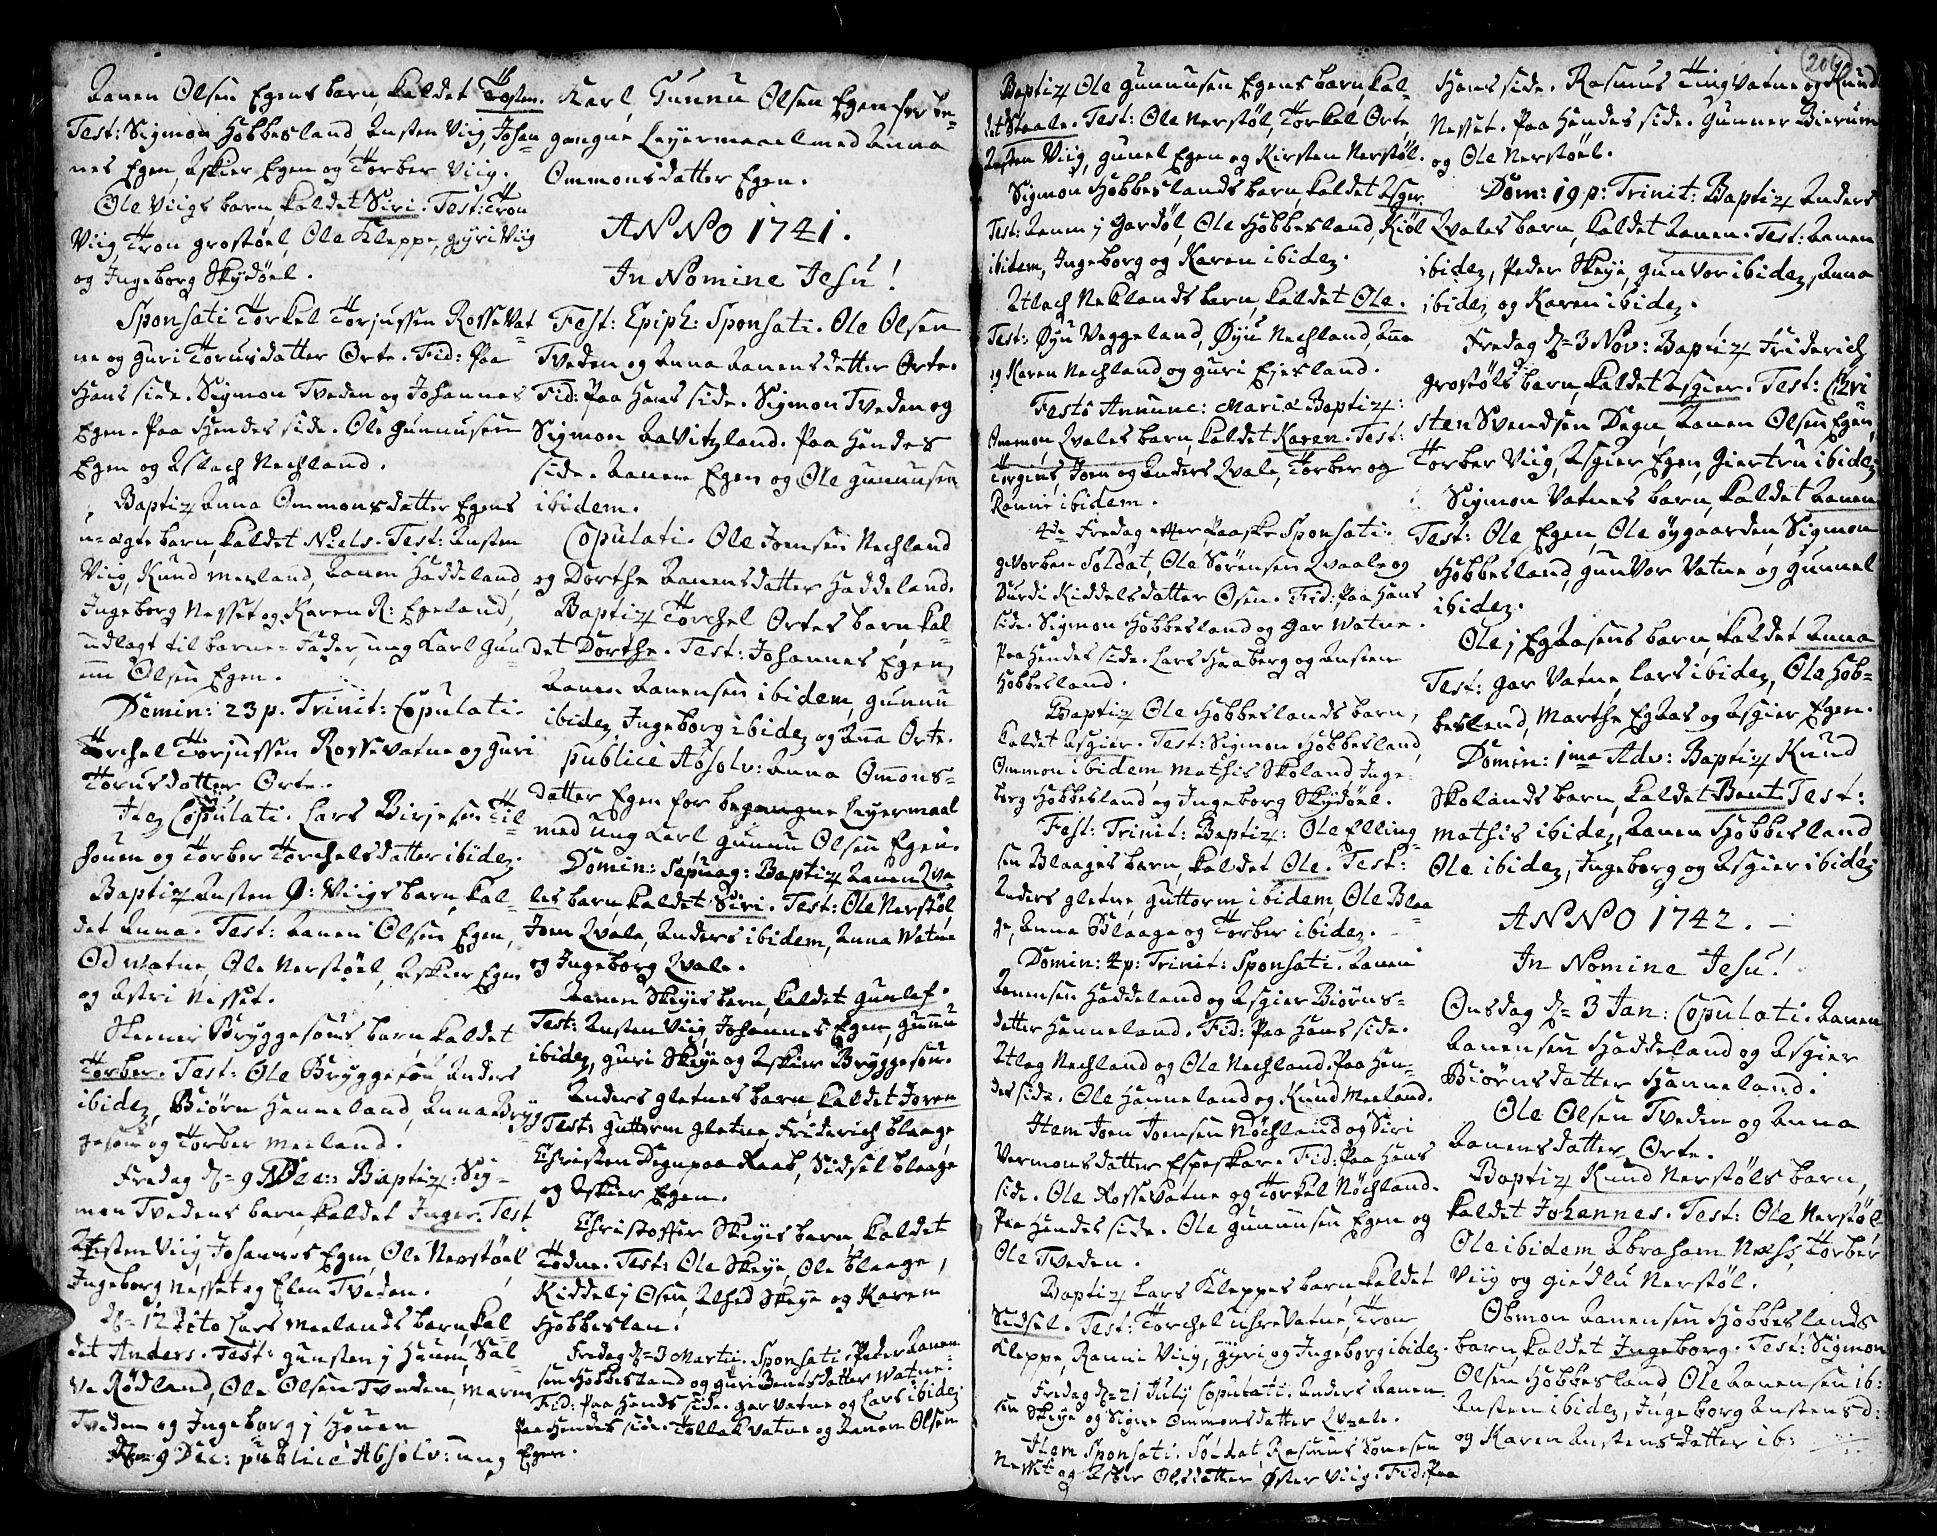 Aanen Olsen Egens barn, kaldet Tosten.
Test: Sigmon Hobbesland, Austen Viig, Johan-
nes Egen, Asier Egen og Torber Viig.
Ole Viigs barn, kaldet Siri. Test: Tron
Viig, Tron Grostøel, Ole Kleppe, Gyri Viig
og Ingeborg Skydøel.
Sponsati Torkel Torjussen Rossevat-
ne og Guri Torusdatter Orte. Fid: Paa
Hans side. Sigmon Tveden og Johannes
Egen. Paa Hendes side. Ole Gunnusen
Egen og Aslach Nechland.
Baptiz. Anna Ommonsdatter Egens
u-ægte barn, kaldet Niels. Test: Austen
Viig, Knud Meeland, Aanen Haddeland,
Ingeborg Nesset og Karen R: Egeland,
udlagt til barne-Fader, ung Karl Gun-
nu Olsen Egen.
Domin: 23 p. Trinit: Copulati.
Torchel Torjussen Rossevatne og Guri
Torusdatter Orte.
Item Copulati. Lars Birjesøn Til-
houen og Torber Torchelsdatter ibidem.
Baptiz. Austen Ø: Viigs barn, kal-
det Anna. Test: Aanen Olsen Egen,
Od Watne, Ole Nerstøel, Asier Egen
og Astri Nesset.
Steener Bryggesous barn, kaldet
Torber. Test: Ole Bryggesou, Anders
ibidem, Biørn Henneland, Anna Bryg-
gesou og Torber Meeland.
Fredag d. 9 Dec: Baptiz: Sig-
mon Tvedens barn, kaldet Inger. Test
Austen Viig, Johannes Egen, Ole Nerstøel
Ingeborg Nesset og Elen Tveden.
d. 12 dito Lars Meelands barn, kal-
det Anders. Test: Gunsten j Houen, Sal-
ve Rødland, Ole Olsen Tveden, Maren
Tveden og Ingeborg j Houen
d. 9 Dec: publice Absolv: ung
Karl, Gunnu Olsen Egen for be-
gangne Leyermaael med Anna
Ommonsdatter Egen.
ANNO 1741.
In Nomine Jesu!
Fest: Epiph: Sponsati. Ole Olsen
Tveden og Anna Aanensdatter Orte.
Fid: Paa Hans side. Sigmon Tveden og
Sigmon Lavitzland. Paa Hendes
side. Aanen Egen og Ole Gunnusen
ibidem.
Copulati. Ole Joensen Nechland
og Dorthe Aanensdatter Haddeland.
Baptiz. Torchel Ortes barn, kal-
det Dorthe. Test: Johannes Egen,
Aanen Aanensen ibidem, Gunnu
ibidem, Ingeborg ibidem og Anna Orte.
Publice Absolv: Anna Omons-
datter Egen for begangne Leyermaal
med ung Karl Gunnu Olsen Egen.
Domin: Sepuag: Baptiz. Aanen Qva-
les barn kaldet Siri. Test: Ole Nerstøl,
Joen Qvale, Anders ibidem, Anna Watne
og Ingeborg Qvale.
Aanen Skeyes barn, kaldet Gunlef.
Test: Austen Viig, Johannes Egen, Gunnu
ibidem, Guri Skeye og Asier Bryggesou.
Anders Gletnes barn, kaldet Joren
Test: Guttorm Gletne, Friderich Blaage,
Christen Degn paa Raab, Sidsel Blaage
og Asier Egen.
Christoffer Skeyes barn, kaldet
Todne. Test: Ole Skeye, Ole Blaage,
Kiddel j Osen, Alhed Skeye og Karen
Hobbeslan.
Fredag d. 3 Martii. Sponsati. Peder Aanen-
sen Hobbesland og Guri Bendsdatter Watne:
Fid: Paa Hands side. Gar Vatne og Lars ibidem
Paa Hendes side. Tollak Vatne og Aanen Olsen
Egen.
Baptiz. Ole Gunnusen Egens barn, kal-
det Staale. Test: Ole Nerstøl, Torkel Orte,
Austen Viig, Gunel Egen og Kirsten Nerstøl.
Sigmon Hobbeslands barn, kaldet Asger.
Test: Aanen j Gardøl, Ole Hobbesland, Kiøl
ibidem, Ingeborg og Karen ibidem.
Atlach Neklands barn, kaldet Ole.
Test: Øyu Veggeland, Øyu Nechland, Anna
og Karen Nechland og Guri Ejesland.
Festo Anunc: Mariæ Baptiz:
Ommon Qvales barn, kaldet Karen. Test:
Torgius, Joen og Anders Qvale, Torber og
Ranni ibidem.
4de Fredag efter Paaske Sponsati.
gevorben Soldat, Ole Sørensen Qvaale og
Durdi Kiddelsdatter Osen. Fid: Paa Hans
side. Sigmon Hobbesland og Gar Watne.
Paa Hendes side. Lars Haaberg og Austen
Hobbesland.
Baptiz. Ole Hobbeslands barn,
kaldet Asgier. Test: Sigmon Hobbesland,
Ommon ibidem, Mathis Skoland, Inge-
borg Hobbesland og Ingeborg Skydøel.
Fest: Trinit: Baptiz: Ole Elling-
sen Blaages barn, kaldet Ole. Test:
Anders Gletne, Guttorm ibidem, Ole Blaa-
ge, Anna Blaage og Torber ibidem.
Domin: 4 p: Trinit: Sponsati. Aanen
Aanensen Haddeland og Asgier Biørns-
datter Henneland. Fid: Paa Hans side.
Atlag Nechland og Ole Nechland. Paa Hen-
des side. Ole Henneland og Knud Meeland.
Item Joen Joensen Nøchland og Siri
Vermonsdatter Espeskar. Fid: Paa Hans
side. Ole Rossevatne og Torkel Nøchland.
Paa Hendes side. Ole Gunnusen Egen og
Ole Tveden.
Baptiz. Lars Kleppes barn, kaldet
Sidsel. Test: Torchel Uhrevatne, Tron
Kleppe, Ranni Viig, Gyri og Ingeborg ibidem.
Fredag d. 21 Julij Copulati. Anders Aanen-
sen Skeye og Signe Ommonsdatter Qvaale.
Item Sponsati. Soldat, Rasmus Tønesen
Nesset og Asber Olsdatter Øster Viig. Fid: Paa
206
Hans side. Rasmus Tingvatne og Knud
Nesset. Paa Hendes side. Gunner Bierum
og Ole Nerstøel.
Dom: 19 p: Trinit: Baptiz. Anders
Qvales barn, kaldet Aanen. Test: Aanen
ibidem, Peder Skeye, Gunvor ibidem, Anna
ibidem og Karen ibidem.
Fredag d. 3 Nov: Baptiz. Friderich
Grostøls barn, kaldet Asgier. Test: Chri
sten Svendsen Degn, Aanen Olsen Egen,
Torber Viig, Asgier Egen, Giertru ibidem
Sigmon Vatnes barn, kaldet Aanen
Test: Ole Egen, Ole Øygaarden, Sigmon
Hobbesland, Gunvor Vatne og Gunnel
ibidem.
Ole j Egaasens barn, kaldet Anna
Test: Gar Vatne, Lars ibidem, Ole Hob-
besland, Marthe Egaas og Asgier Egen.
Domin: 1ma Adv: Baptiz. Knud
Skolands barn, kaldet Bent. Test:
Mathis ibidem, Aanen Hobbesland
Ole ibidem, Ingeborg og Asgier ibidem
ANNO 1742.
In Nomine Jesu!
Onsdag d. 3 Jan: Copulati. Aanen
Aanensen Haddeland og Asgier
Biørnsdatter Hanneland.
Ole Olsen Tveden og Anna
Aanensdatter Orte.
Baptiz. Knud Nerstøls barn,
kaldet Johannes. Test: Ole Nerstøl
Ole ibidem, Abraham Næss, Torber
Viig og Giedlu Nerstøl.
Obmon Aanensen Hobbeslands
barn, kaldet Ingeborg. Test: Sigmon
Olsen Hobbesland, Ole Aanensen ib:
Austen ibidem, Ingeborg Austensd:
og Karen Austensdatter ib: